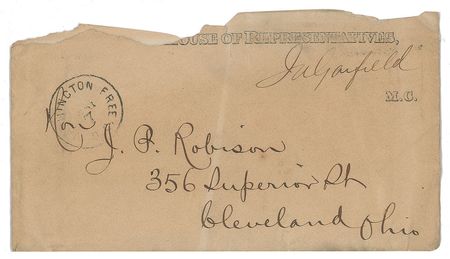 HOUSE OF REPRESENTATIVES,
JAGarfield
M.C.
INGTON FREE
J. P. Robison
356 Superior St
Cleveland Ohio